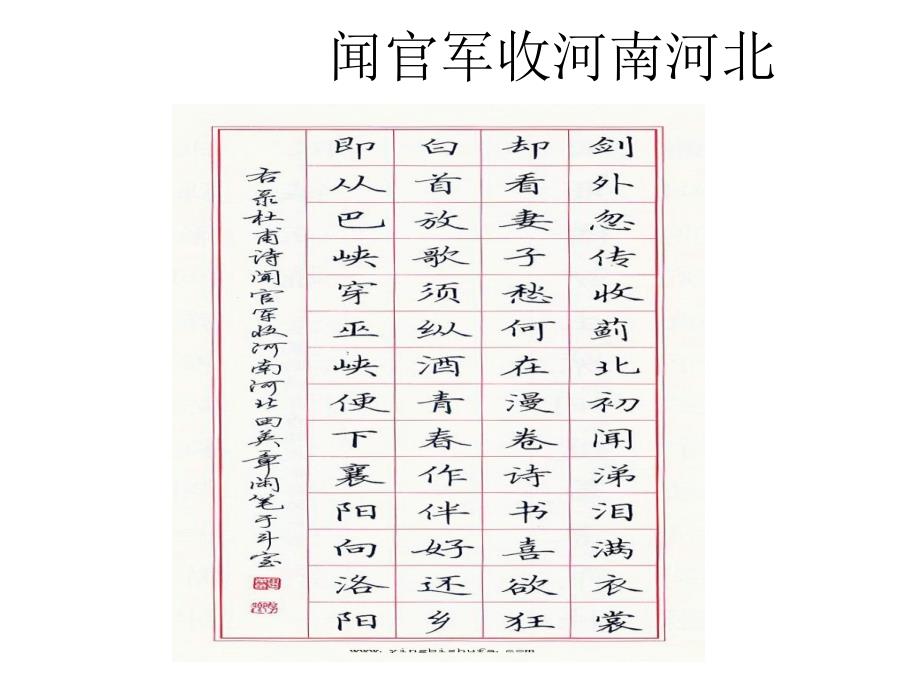 闻官军收河南河北
剑外忽传收蓟北初闻涕泪满衣裳
却看妻子愁何在漫卷诗书喜欲狂
白首放歌须纵酒青春作伴好还乡
即从巴峡穿巫峡便下襄阳向洛阳
右录杜甫诗闻官军收河南河北田英章闲笔于斗室
www.yingbishufa.com